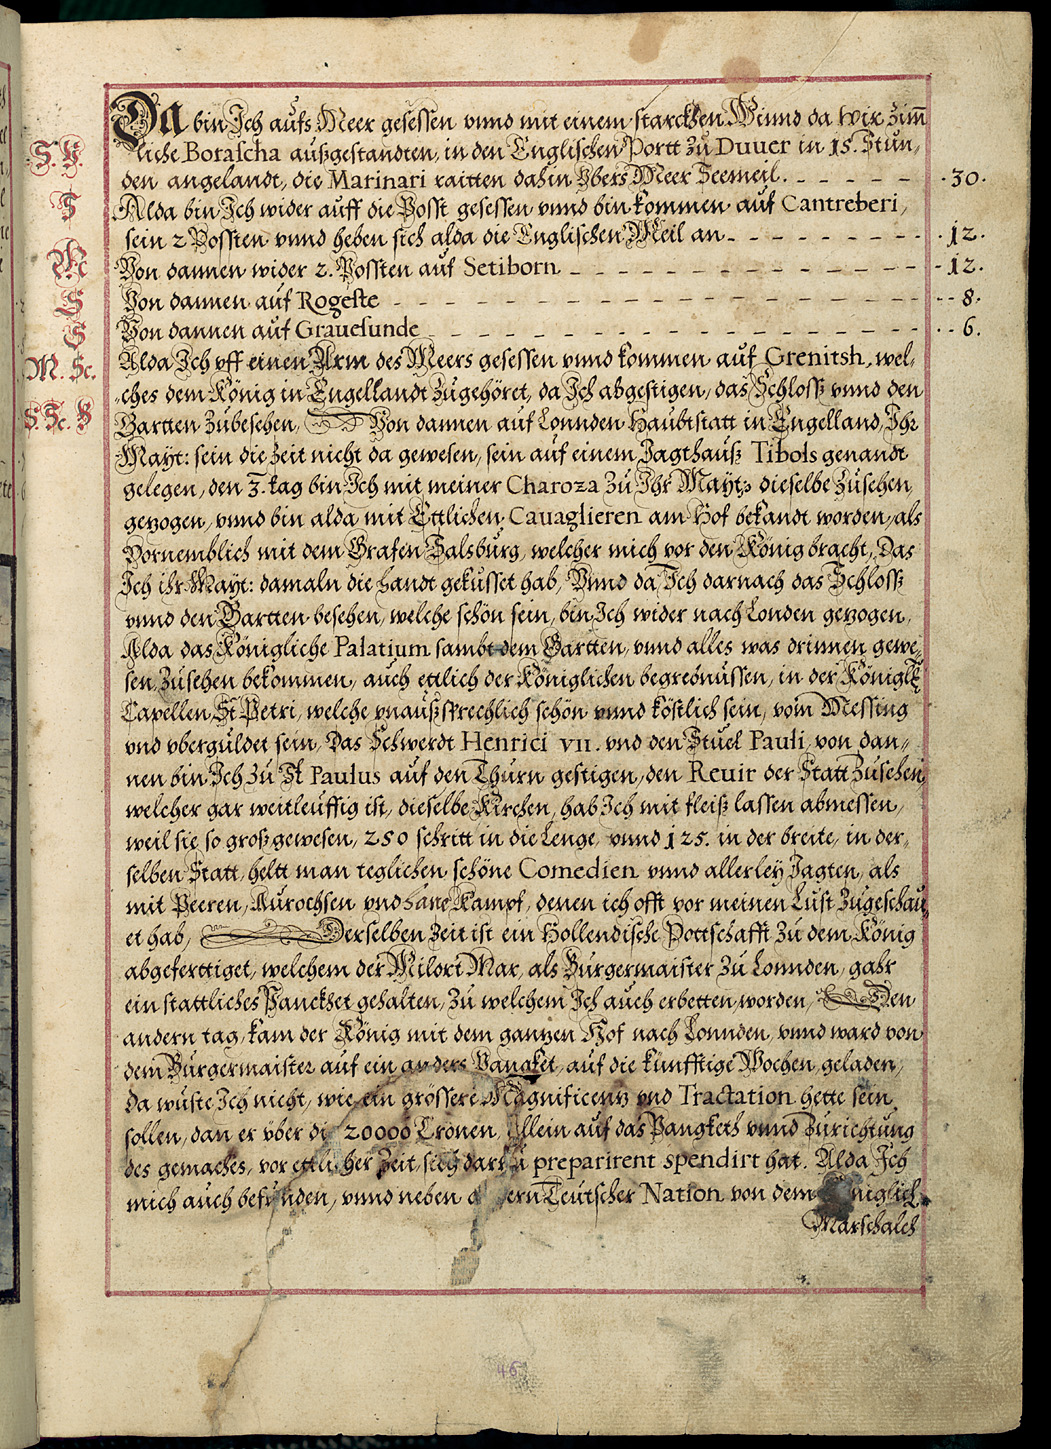 Da bin Ich aufs Meer gesessen vnnd mit einem starckhen Winnd da wir zim̄
S. H. liche Borascha außgestandten, in den Englischen Portt zu Duuer in 15. Stun,
den angelandt, die Marinari raitten dahin Vbers Meer Seemeil. 30.
S Alda bin Ich wider auff die Posst gesessen vnnd bin kommen auf Cantreberi,
sein 2 Possten vnnd heben sich alda die Englischen Meil an 12.
M Von dannen wider 2. Possten auf Setiborn 12.
S Von dannen auf Rogeste 8.
S Von dannen auf Grauesunde 6.
M. Sc. Alda Ich vff einen Arm des Meers gesessen vnnd kommen auf Grenitsh, wel,
ches dem König in Engellandt zugehöret, da Ich abgestigen, das Schloss vnnd den
S. Sc. Gartten zubesehen, Von dannen auf Lonnden Haubtstatt in Engelland, Ihr
Mayt: sein die zeit nicht da gewesen, sein auf einem Jagthauß Tibols genandt
gelegen, den 3. tag bin Ich mit meiner Charoza zu Ihr Mayt: dieselbe zusehen
gezogen, vnnd bin alda mit Ettlichen Cauaglieren am Hof bekandt worden, als
Vornemblich mit dem Grafen Salsburg, welcher mich vor den König bracht, Das
Ich ihr Mayt: damaln die handt gekusset hab, Vnnd da Ich darnach das Schloss
vnnd den Gartten besehen, welche schön sein, bin Ich wider nach Londen gezogen,
Alda das Königliche Palatium sambt dem Gartten, vnnd alles was drinnen gewe,
sen, zusehen bekommen, auch ettlich der Königlichen begrebnüssen, in der Königl:
Capellen St Petri, welche vnaußsprechlich schön vnnd köstlich sein, vom Messing
vnd vbergüldet sein, Das Schwerdt Henrici VII. vnd den Stuel Pauli, von dan,,
nen bin Ich zu St Paulus auf den Thurn gestigen, den Reuir der Statt zusehen,
welcher gar weitleuffig ist, dieselbe Kirchen, hab Ich mit fleiß lassen abmessen,
weil sie so groß gewesen, 250 schritt in die Lenge, vnnd 125. in der breite, in der,,
selben Statt, heltt man teglichen schöne Comedien vnnd allerley Jagten, als
mit Peeren, Aurochsen vnd hane Kampf, denen ich offt vor meinen Lust zugeschau,
et hab, Derselben zeit ist ein Hollendische Pottschafft zu dem König
abgeferttiget, welchem der Milori Mar, als Burgermaister zu Lonnden, gahr
ein stattliches Panckhet gehalten, zu welchem Ich auch erbetten worden, Den
andern tag, kam der König mit dem ganzen Hof nach Lonnden, vnnd ward von
dem Burgermaister auf ein anders Pangket, auf die kunfftige Wochen geladen,
da wuste Ich nicht, wie ein grössere Magnificentz vnd Tractation hette sein
sollen, dan er vber di 20000 Cronen, Allein auf das Pangketh vnnd Zurichtung
des gemaches, vor ettlicher zeit, sich darzu preparirent spendirt hat. Alda Ich
mich auch befunden, vnnd neben ern Teutscher Nation von dem niglich
Marschalch
46